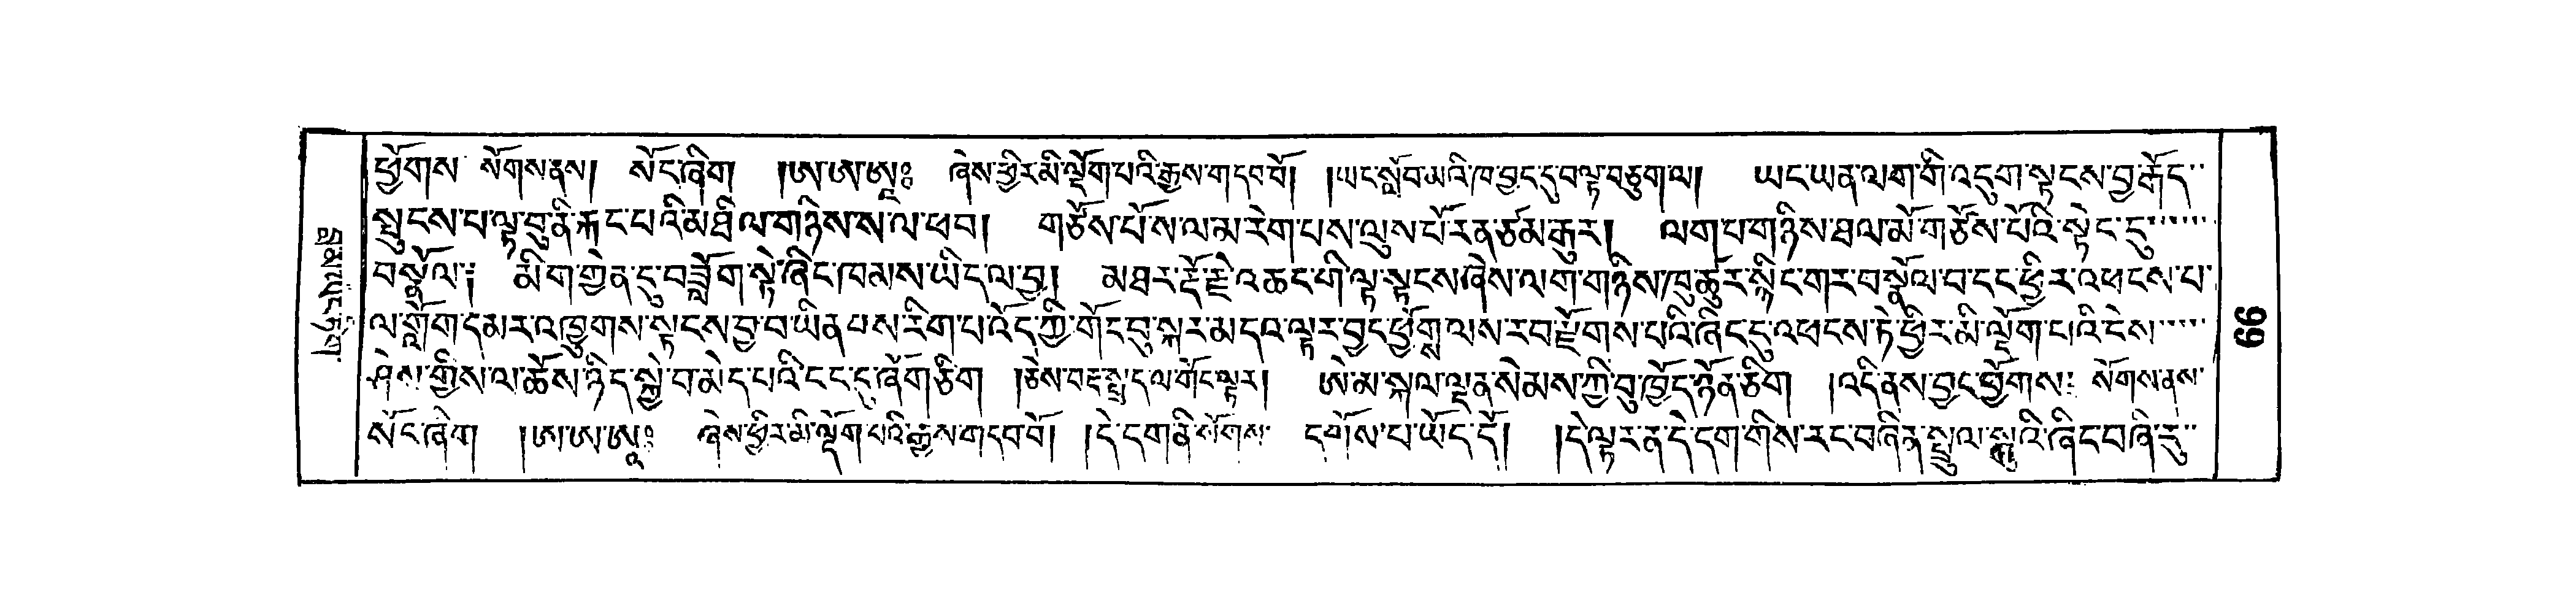 ཕྱོགས་ སོགས་ནས། སོང་ཞིག །ཨ་ཨ་ཨཱཿ ཞེས་ཕྱིར་མི་ལྡོག་པའི་རྒྱས་གདབ་བོ། །ཡང་སློབ་མའི་ཁ་བྱང་དུ་བལྟ་བཅུག་ལ། ཡང་ཡན་ལག་གི་འདུག་སྟངས་བྱ་རྒོད་
སྤུངས་པ་ལྟ་བུ་ནི་རྐང་པའི་མཐིལ་གཉིས་ས་ལ་ཕབ། གཙོས་པོས་ལ་མ་རེག་པས་ལུས་པོ་རན་ཙམ་རྒུར། ལག་པ་གཉིས་ཐལ་མོ་གཙོས་པོའི་སྟེང་དུ་
བསྣོལ་ མིག་གྱེན་དུ་བཟློག་སྟེ་ཞིང་ཁམས་ཡིད་ལ་བྱ། མཐར་རྡོ་རྗེ་འཆང་གི་ལྟ་སྟངས་ཞེས་ལག་གཉིས་ཁུ་ཚུར་སྙིང་གར་བསྣོལ་བ་དང་ཕྱིར་འཕངས་པ་
ལ་གློག་དམར་འཁྱུགས་སྟངས་བྱ་བ་ཡིན་པས་རིག་པ་འོད་ཀྱི་གོང་བུ་སྐར་མདའ་ལྟར་བྱང་ཕྱོགས་ལས་རབ་རྫོགས་པའི་ཞིང་དུ་འཕངས་ཏེ་ཕྱིར་མི་ལྡོག་པའི་ངེས་
ཤེས་གྱིས་ལ་ཆོས་ཉིད་སྐྱེ་བ་མེད་པའི་ངང་དུ་ཞོག་ཅིག །ཅེས་བརྡ་སྤྲད་ལ་གོང་ལྟར། ཨེ་མ་སྐལ་ལྡན་སེམས་ཀྱི་བུ་ཁྱོད་ཉོན་ཅིག །འདི་ནས་བྱང་ཕྱོགས་ སོགས་ནས་
སོང་ཞིག །ཨ་ཨ་ཨཱཿ ཞེས་ཕྱིར་མི་ལྡོག་པའི་རྒྱས་གདབ་བོ། །དེ་དག་ནི་སོགས་ དགོས་པ་ཡོད་དོ། །དེ་ལྟར་ན་དེ་དག་གིས་རང་བཞིན་སྤྲུལ་སྐུའི་ཞིང་བཞི་རུ་